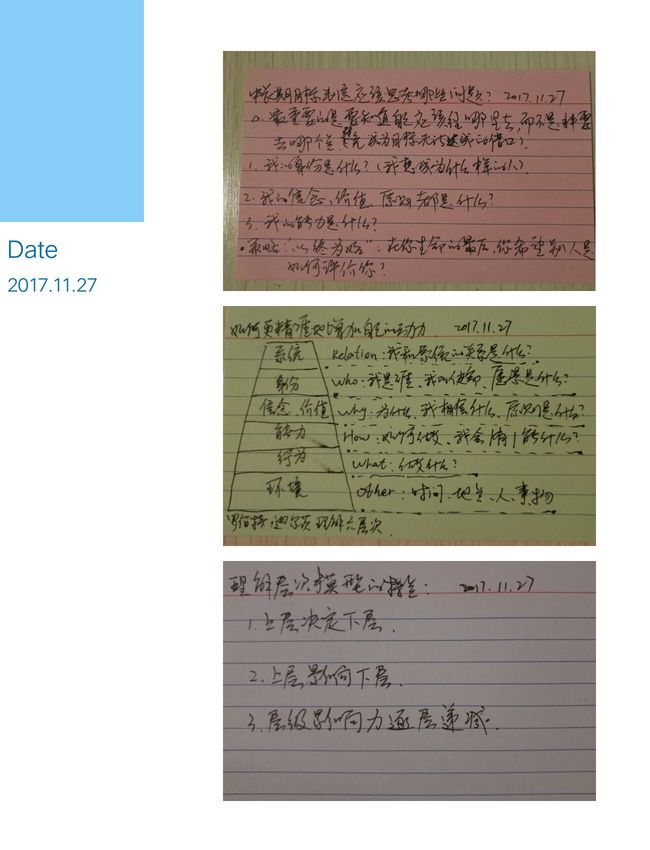 Date
2017.11.27
中长期目标制定应该思考哪些问题? 2017.11.27
0. 最重要的是要知道自己应该往哪里去,而不是非要
去哪个点
1. 我的身份是什么?(我想成为什么样的人)
2. 我的信念、价值、原则都是什么?
3. 我的能力是什么?
策略:"以终为始":在你生命的最后,你希望别人是
如何评价你?
如何更精准地增加自己的动力 2017.11.27
系统 Relation:我和系统的关系是什么?
身份 Who:我是谁、我的使命、愿景是什么?
信念、价值 Why:为什么、我相信什么、原则是什么?
能力 How:如何做、我会什么?
行为 What:做什么?
环境 Other:时间、地点、人、事、物
罗伯特·迪尔茨 理解六层次
理解层次模型的特点: 2017.11.27
1. 上层决定下层.
2. 上层影响下层.
3. 层级影响力逐层递减.